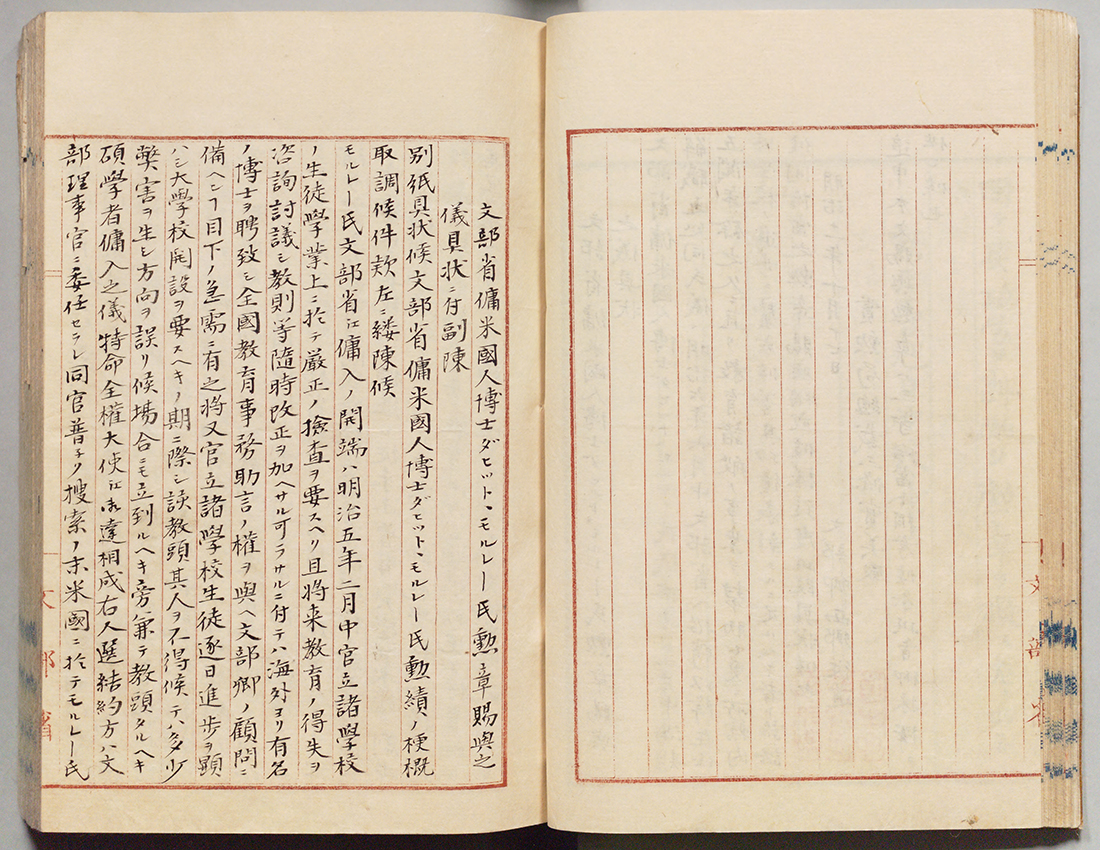 文部省
文部省傭米國人博士ダヒット、モルレー氏勲章賜與之
儀具状ニ付副陳
別紙具状候文部省傭米國人博士ダヒット、モルレー氏勲績ノ梗概
取調候件欵左ニ縷陳候
モルレー氏文部省江傭入ノ開端ハ明治五年二月中官立諸學校
ノ生徒學業上ニ於テ厳正ノ撿査ヲ要スヘリ且将来教育ノ得失ヲ
咨詢討議シ教則等隨時改正ヲ加ヘサル可ラサルニ付テハ海外ヨリ有名
ノ博士ヲ聘致シ全國教育事務助言ノ權ヲ與ヘ文部卿ノ顧問ニ
備ヘンヿ目下ノ急需ニ有之将又官立諸學校生徒逐日進歩ヲ顕
ハシ大學校開設ヲ要スヘキノ期ニ際シ該教頭其人ヲ不得候テハ多少
弊害ヲ生シ方向ヲ誤リ候場合ニモ立到ルヘキ旁兼テ教頭タルヘキ
碩學者傭入之儀特命全權大使江御達相成右人選結約方ハ文
部理事官ニ委任セラレ同官普子リ搜索ノ末米國ニ於テモルレー氏
文部省